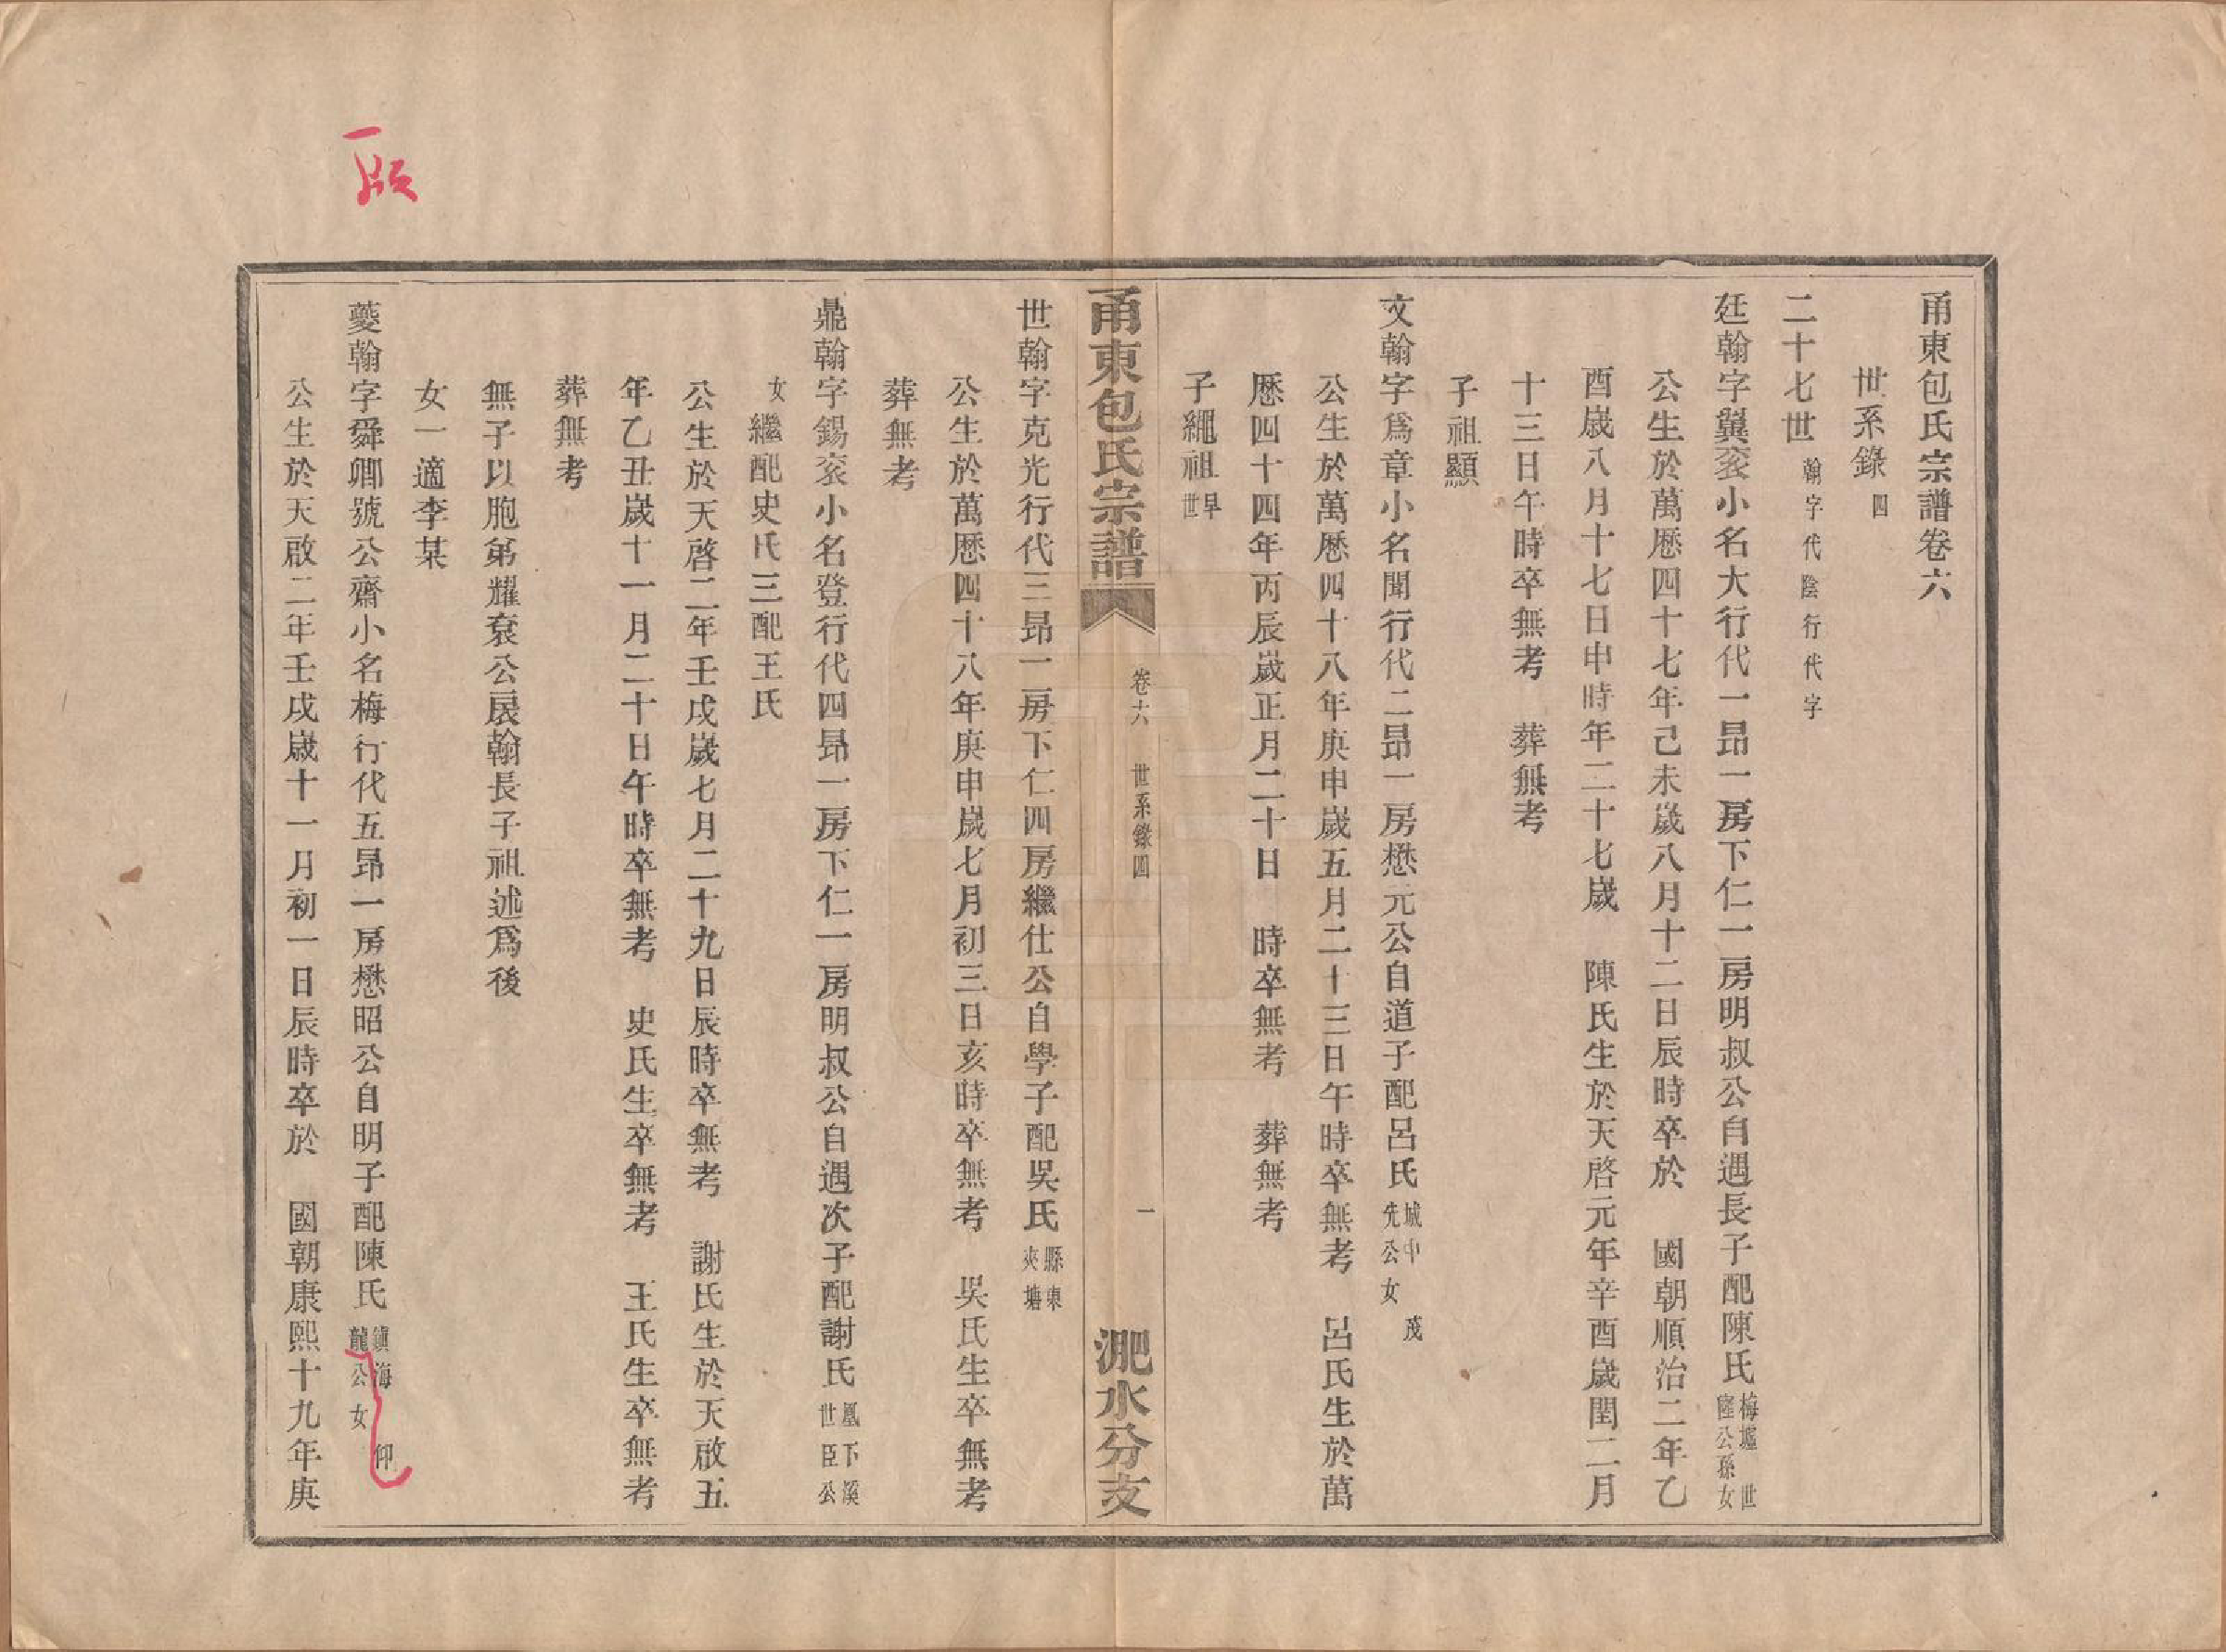 甬東包氏宗譜卷六
世系錄四
二十七世翰字代陰行代字
廷翰字翼衮小名大行代一昂一房下仁一房明叔公自遇長子配陳氏梅墟世隆公孫女
公生於萬歷四十七年己未歲八月十二日辰時卒於 國朝順治二年乙
酉歲八月十七日申時年二十七歲 陳氏生於天啓元年辛酉歲閏二月
十三日午時卒無考 葬無考
子祖顯
文翰字爲章小名聞行代二昂一房懋元公自道子配呂氏城中茂先公女
公生於萬歷四十八年庚申歲五月二十三日午時卒無考 呂氏生於萬
歷四十四年丙辰歲正月二十日 時卒無考 葬無考
子繩祖早世
甬東包氏宗譜 卷六 世系錄四 一 淝水分支
世翰字克光行代三昂一房下仁四房繼仕公自學子配吳氏縣東夾塘
公生於萬歷四十八年庚申歲七月初三日亥時卒無考 吳氏生卒無考
葬無考
鼎翰字錫衮小名登行代四昂一房下仁一房明叔公自遇次子配謝氏鳳下溪世臣公
女繼配史氏三配王氏
公生於天啓二年壬戌歲七月二十九日辰時卒無考 謝氏生於天啟五
年乙丑歲十一月二十日午時卒無考 史氏生卒無考 王氏生卒無考
葬無考
無子以胞弟耀袞公扆翰長子祖述爲後
女一適李某
夔翰字舜卿號公齋小名梅行代五昂一房懋昭公自明子配陳氏鎮海仰龍公女
公生於天啟二年壬戌歲十一月初一日辰時卒於 國朝康熙十九年庚
一版